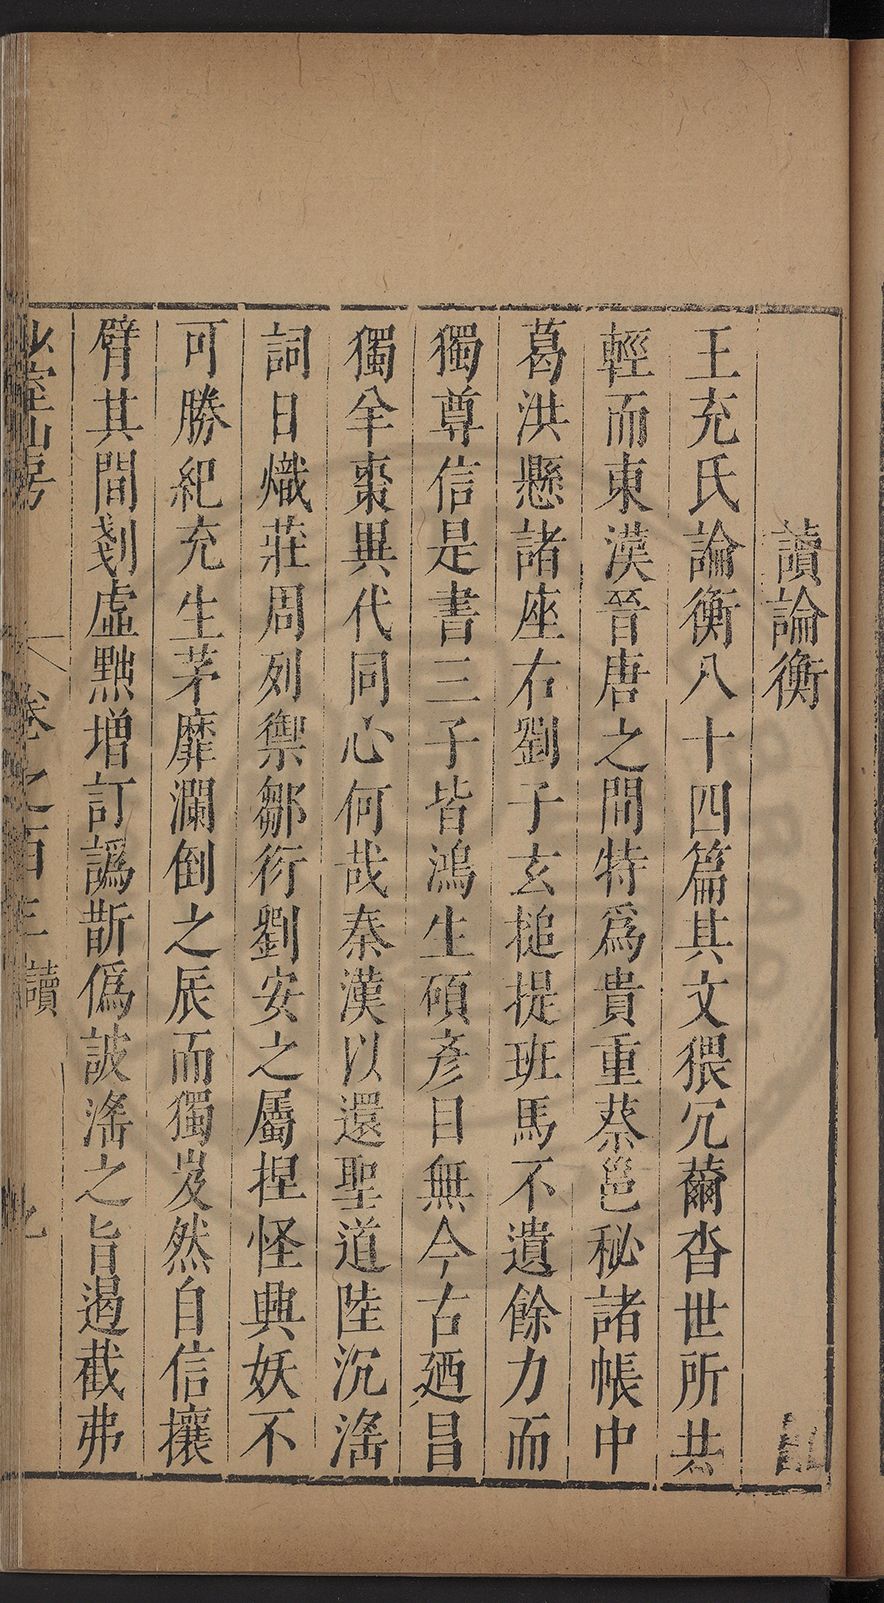 讀論衡
王充氏論衡八十四篇其文猥冗薾沓世所共
輕而東漢晉唐之間特爲貴重蔡邕秘諸帳中
葛洪懸諸座右劉子玄搥提班馬不遺餘力而
獨尊信是書三子皆鴻生碩彥目無今古廼昌
獨羊棗異代同心何哉秦漢以還聖道陸沉滛
詞日熾莊周列禦鄒衍劉安之屬捏怪興妖不
可勝紀充生茅靡瀾倒之辰而獨岌然自信攘
臂其間剗虛黜增訂譌斮僞詖滛之旨遏截弗
少室山房
卷之百三 讀 九